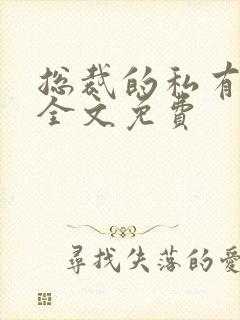 总裁的私有
全文免费
尋找失落的愛